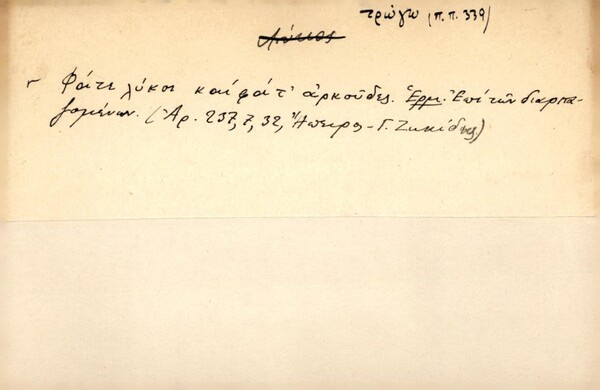 τρώγω (π.π. 339)
Λύκος
Φάτε λύκοι καί φάτ' ἀρκοῦδες. Ἑρμ. Ἐπί τῶν διαρπα-
ζομένων. (Ἀρ. 237, 7, 32, Ἤπειρος - Γ. Ζηκίδης)